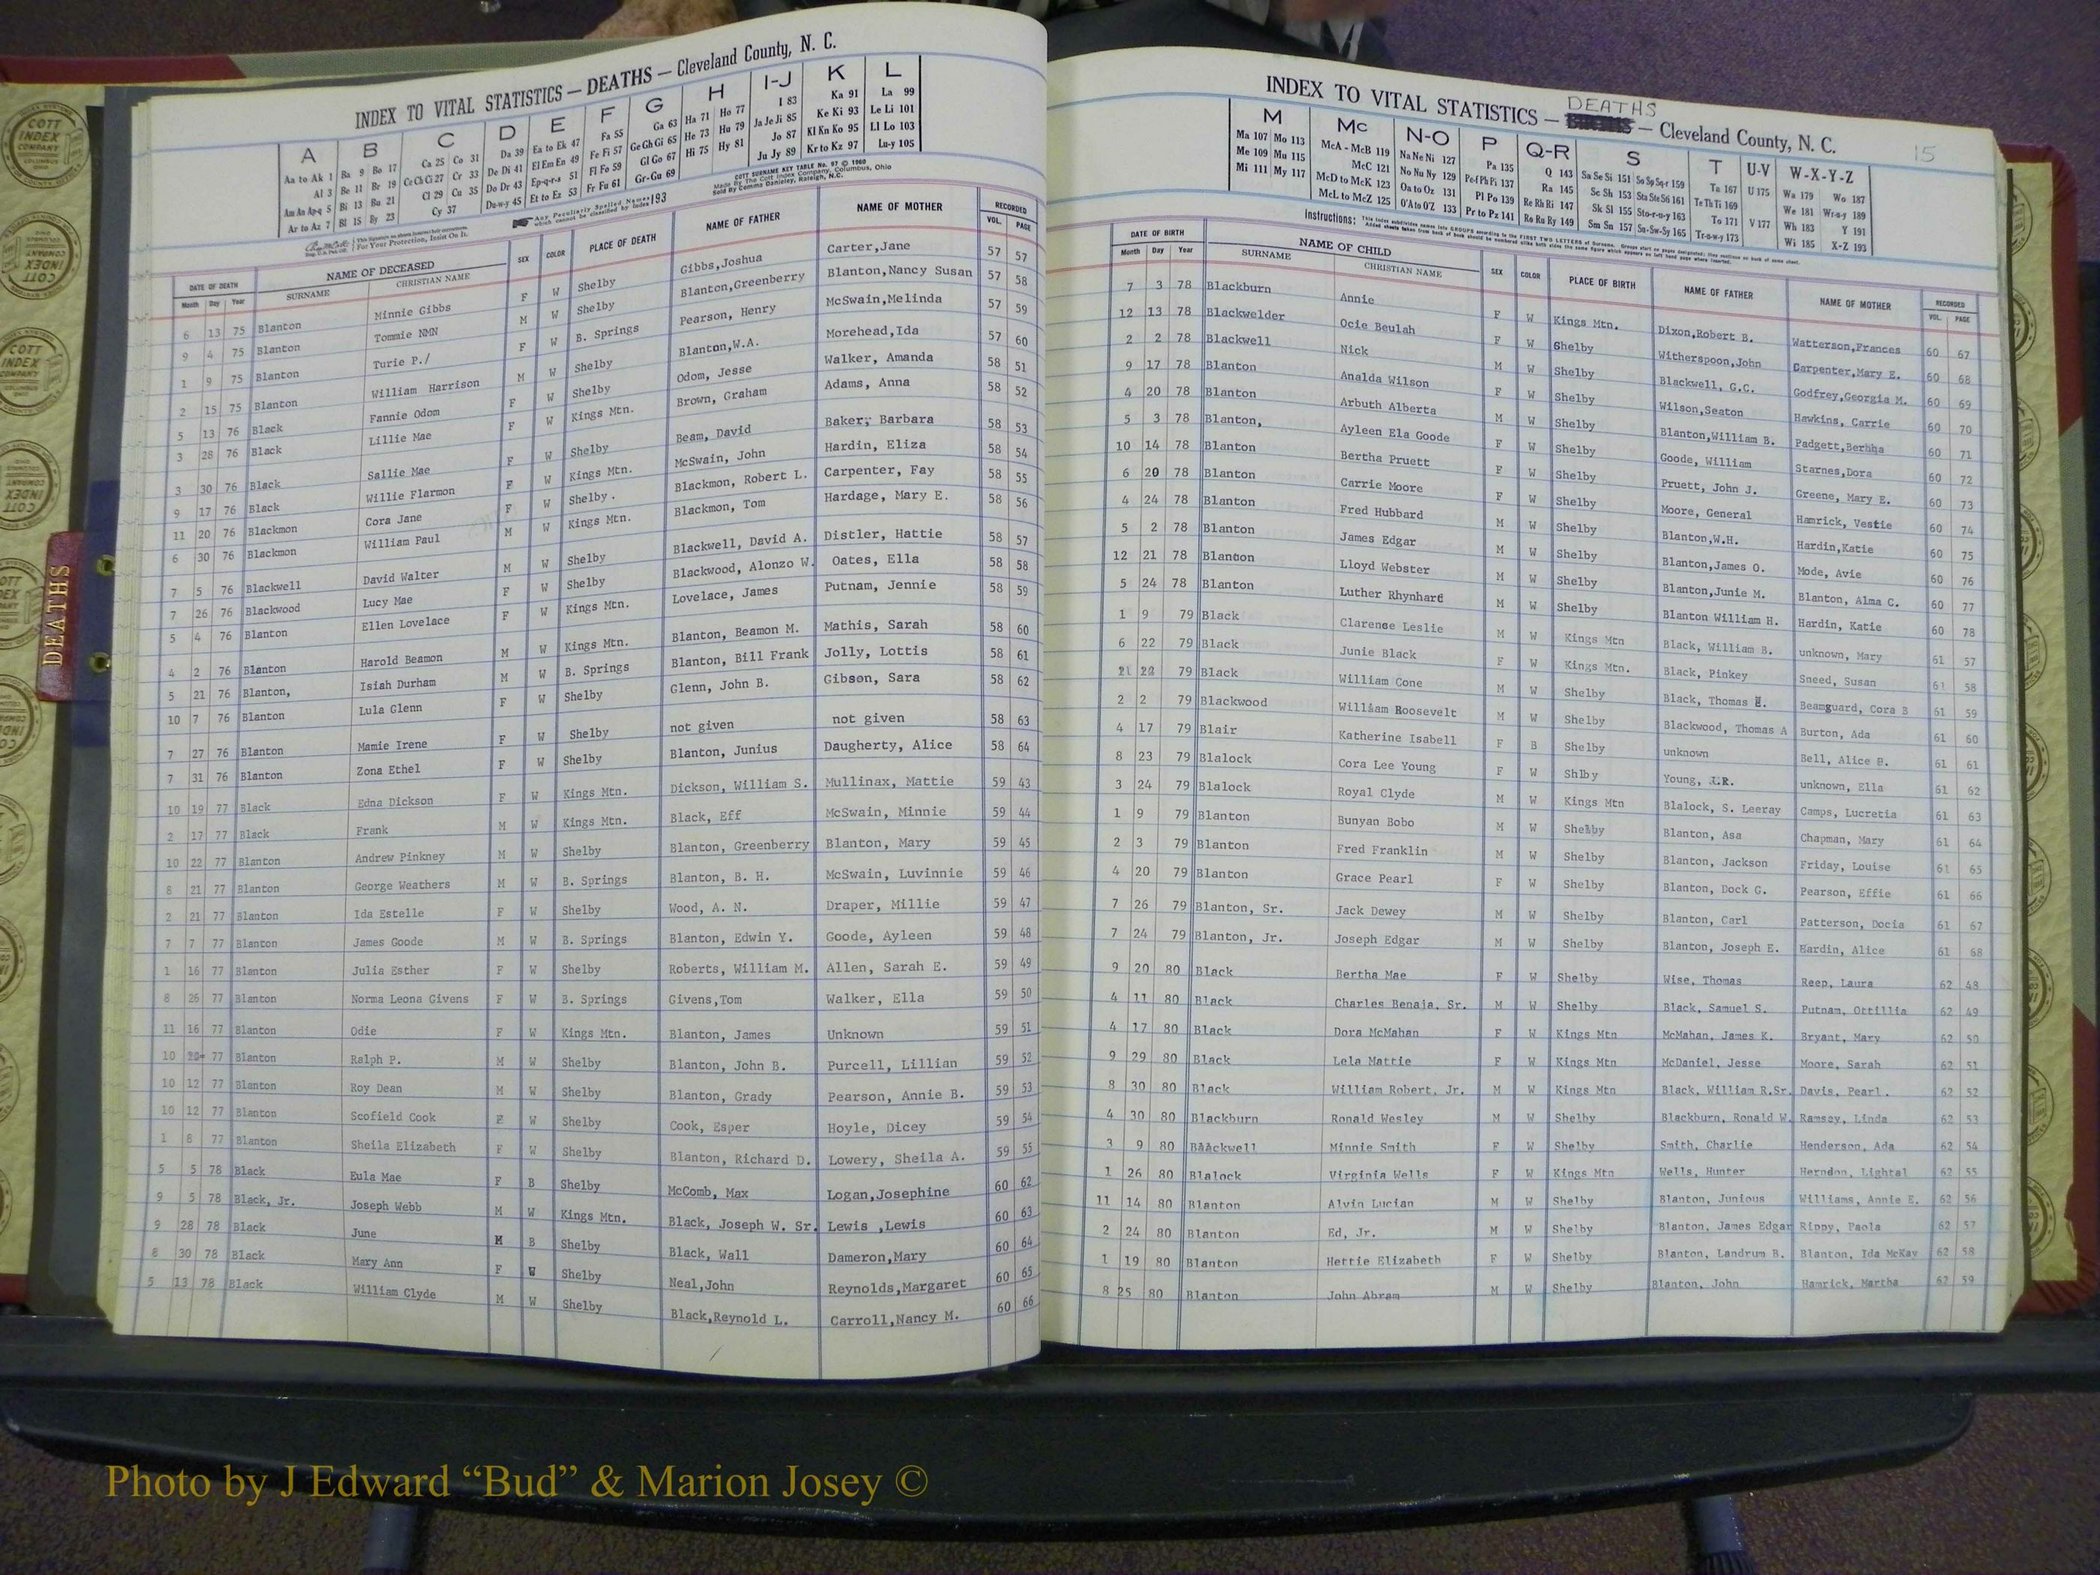 INDEX TO VITAL STATISTICS — DEATHS — Cleveland County, N. C.
A B C D E F G H I-J K L
Aa to Ak 1 Ba 9 Bo 17 Ca 25 Co 31 Da 39 Ea to Ek 47 Fa 55 Ga 63 Ha 71 Ho 77 I 83 Ka 91 La 99
Al 3 Be 11 Br 19 Ce Ch Ci 27 Cr 33 De Di 41 El Em En 49 Fe Fi 57 Ge Gh Gi 65 He 73 Hu 79 Ja Je Ji 85 Ke Ki 93 Le Li 101
Am An Ap-q 5 Bi 13 Bu 21 Cl 29 Cu 35 Do Dr 43 Ep-q-r-s 51 Fl Fo 59 Gl Go 67 Hi 75 Hy 81 Jo 87 Kl Kn Ko 95 Ll Lo 103
Ar to Az 7 Bl 15 By 23 Cy 37 Du-w-y 45 Et to Ez 53 Fr Fu 61 Gr-Gu 69 Ju Jy 89 Kr to Kz 97 Lu-y 105
COTT SURNAME KEY TABLE No. 97 © 1960
Made By The Cott Index Company, Columbus, Ohio
Any Peculiarly Spelled Names which cannot be classified by index 193
For Your Protection, Insist On It.
DATE OF DEATH NAME OF DECEASED SEX COLOR PLACE OF DEATH NAME OF FATHER NAME OF MOTHER RECORDED
Month Day Year SURNAME CHRISTIAN NAME VOL. PAGE
6 13 75 Blanton Minnie Gibbs F W Shelby Gibbs,Joshua Carter,Jane 57 57
9 4 75 Blanton Tommie NMN M W Shelby Blanton,Greenberry Blanton,Nancy Susan 57 58
1 9 75 Blanton Turie P./ F W B. Springs Pearson, Henry McSwain,Melinda 57 59
2 15 75 Blanton William Harrison M W Shelby Blanton,W.A. Morehead,Ida 57 60
5 13 76 Black Fannie Odom F W Shelby Odom, Jesse Walker, Amanda 58 51
3 28 76 Black Lillie Mae F W Kings Mtn. Brown, Graham Adams, Anna 58 52
3 30 76 Black Sallie Mae F W Shelby Beam, David Baker, Barbara 58 53
9 17 76 Black Willie Flarmon F W Kings Mtn. McSwain, John Hardin, Eliza 58 54
11 20 76 Blackmon Cora Jane F W Shelby. Blackmon, Robert L. Carpenter, Fay 58 55
6 30 76 Blackmon William Paul M W Kings Mtn. Blackmon, Tom Hardage, Mary E. 58 56
7 5 76 Blackwell David Walter M W Shelby Blackwell, David A. Distler, Hattie 58 57
7 26 76 Blackwood Lucy Mae F W Shelby Blackwood, Alonzo W. Oates, Ella 58 58
5 4 76 Blanton Ellen Lovelace F W Kings Mtn. Lovelace, James Putnam, Jennie 58 59
4 2 76 Blanton Harold Beamon M W Kings Mtn. Blanton, Beamon M. Mathis, Sarah 58 60
5 21 76 Blanton, Isiah Durham M W B. Springs Blanton, Bill Frank Jolly, Lottis 58 61
10 7 76 Blanton Lula Glenn F W Shelby Glenn, John B. Gibson, Sara 58 62
7 27 76 Blanton Mamie Irene F W Shelby not given not given 58 63
7 31 76 Blanton Zona Ethel F W Shelby Blanton, Junius Daugherty, Alice 58 64
10 19 77 Black Edna Dickson F W Kings Mtn. Dickson, William S. Mullinax, Mattie 59 43
2 17 77 Black Frank M W Kings Mtn. Black, Eff McSwain, Minnie 59 44
10 22 77 Blanton Andrew Pinkney M W Shelby Blanton, Greenberry Blanton, Mary 59 45
8 21 77 Blanton George Weathers M W B. Springs Blanton, B. H. McSwain, Luvinnie 59 46
2 21 77 Blanton Ida Estelle F W Shelby Wood, A. N. Draper, Millie 59 47
7 7 77 Blanton James Goode M W B. Springs Blanton, Edwin Y. Goode, Ayleen 59 48
1 16 77 Blanton Julia Esther F W Shelby Roberts, William M. Allen, Sarah E. 59 49
8 26 77 Blanton Norma Leona Givens F W B. Springs Givens,Tom Walker, Ella 59 50
11 16 77 Blanton Odie F W Kings Mtn. Blanton, James Unknown 59 51
10 20 77 Blanton Ralph P. M W Shelby Blanton, John B. Purcell, Lillian 59 52
10 12 77 Blanton Roy Dean M W Shelby Blanton, Grady Pearson, Annie B. 59 53
10 12 77 Blanton Scofield Cook F W Shelby Cook, Esper Hoyle, Dicey 59 54
1 8 77 Blanton Sheila Elizabeth F W Shelby Blanton, Richard D. Lowery, Sheila A. 59 55
5 5 78 Black Eula Mae F B Shelby McComb, Max Logan,Josephine 60 62
9 5 78 Black, Jr. Joseph Webb M W Kings Mtn. Black, Joseph W. Sr. Lewis ,Lewis 60 63
9 28 78 Black June M B Shelby Black, Wall Dameron,Mary 60 64
8 30 78 Black Mary Ann F W Shelby Neal,John Reynolds,Margaret 60 65
5 13 78 Black William Clyde M W Shelby Black,Reynold L. Carroll,Nancy M. 60 66
INDEX TO VITAL STATISTICS — DEATHS — Cleveland County, N. C.
15
M Mc N-O P Q-R S T U-V W-X-Y-Z
Ma 107 Mo 113 McA - McB 119 Na Ne Ni 127 Pa 135 Q 143 Sa Se Si 151 So Sp Sq-r 159 Ta 167 U 175 Wa 179 Wo 187
Me 109 Mu 115 McC 121 No Nu Ny 129 Pe-f Ph Pi 137 Ra 145 Sc Sh 153 Sta Ste Sti 161 Te Th Ti 169 We 181 Wr-u-y 189
Mi 111 My 117 McD to McK 123 Oa to Oz 131 Pl Po 139 Re Rh Ri 147 Sk Sl 155 Sto-r-u-y 163 To 171 V 177 Wh 183 Y 191
McL to McZ 125 O'A to O'Z 133 Pr to Pz 141 Ro Ru Ry 149 Sm Sn 157 Su-Sw-Sy 165 Tr-u-w-y 173 Wi 185 X-Z 193
Instructions: This index subdivides names into GROUPS according to the FIRST TWO LETTERS of Surname.
DATE OF BIRTH NAME OF CHILD SEX COLOR PLACE OF BIRTH NAME OF FATHER NAME OF MOTHER RECORDED
Month Day Year SURNAME CHRISTIAN NAME VOL. PAGE
7 3 78 Blackburn Annie F W Kings Mtn. Dixon,Robert B. Watterson,Frances 60 67
12 13 78 Blackwelder Ocie Beulah F W Shelby Witherspoon,John Carpenter,Mary E. 60 68
2 2 78 Blackwell Nick M W Shelby Blackwell, G.C. Godfrey,Georgia M. 60 69
9 17 78 Blanton Analda Wilson F W Shelby Wilson,Seaton Hawkins, Carrie 60 70
4 20 78 Blanton Arbuth Alberta M W Shelby Blanton,William B. Padgett,Berhha 60 71
5 3 78 Blanton, Ayleen Ela Goode F W Shelby Goode, William Starnes,Dora 60 72
10 14 78 Blanton Bertha Pruett F W Shelby Pruett, John J. Greene, Mary E. 60 73
6 20 78 Blanton Carrie Moore F W Shelby Moore, General Hamrick, Vestie 60 74
4 24 78 Blanton Fred Hubbard M W Shelby Blanton,W.H. Hardin,Katie 60 75
5 2 78 Blanton James Edgar M W Shelby Blanton,James O. Mode, Avie 60 76
12 21 78 Blanton Lloyd Webster M W Shelby Blanton,Junie M. Blanton, Alma C. 60 77
5 24 78 Blanton Luther Rhynhard M W Shelby Blanton William H. Hardin, Katie 60 78
1 9 79 Black Clarence Leslie M W Kings Mtn Black, William B. unknown, Mary 61 57
6 22 79 Black Junie Black F W Kings Mtn. Black, Pinkey Sneed, Susan 61 58
21 22 79 Black William Cone M W Shelby Black, Thomas E. Beamguard, Cora B 61 59
2 2 79 Blackwood William Roosevelt M W Shelby Blackwood, Thomas A Burton, Ada 61 60
4 17 79 Blair Katherine Isabell F B Shelby unknown Bell, Alice B. 61 61
8 23 79 Blalock Cora Lee Young F W Shlby Young, J.R. unknown, Ella 61 62
3 24 79 Blalock Royal Clyde M W Kings Mtn Blalock, S. Leeray Camps, Lucretia 61 63
1 9 79 Blanton Bunyan Bobo M W Shelby Blanton, Asa Chapman, Mary 61 64
2 3 79 Blanton Fred Franklin M W Shelby Blanton, Jackson Friday, Louise 61 65
4 20 79 Blanton Grace Pearl F W Shelby Blanton, Dock G. Pearson, Effie 61 66
7 26 79 Blanton, Sr. Jack Dewey M W Shelby Blanton, Carl Patterson, Docia 61 67
7 24 79 Blanton, Jr. Joseph Edgar M W Shelby Blanton, Joseph E. Hardin, Alice 61 68
9 20 80 Black Bertha Mae F W Shelby Wise, Thomas Reep, Laura 62 48
4 11 80 Black Charles Benaja, Sr. M W Shelby Black, Samuel S. Putnam, Ottillia 62 49
4 17 80 Black Dora McMahan F W Kings Mtn McMahan, James K. Bryant, Mary 62 50
9 29 80 Black Lela Mattie F W Kings Mtn McDaniel, Jesse Moore, Sarah 62 51
8 30 80 Black William Robert, Jr. M W Kings Mtn Black, William R.Sr. Davis, Pearl. 62 52
4 30 80 Blackburn Ronald Wesley M W Shelby Blackburn, Ronald W. Ramsey, Linda 62 53
3 9 80 Blackwell Minnie Smith F W Shelby Smith, Charlie Henderson, Ada 62 54
1 26 80 Blalock Virginia Wells F W Kings Mtn Wells, Hunter Herndon, Lightal 62 55
11 14 80 Blanton Alvin Lucian M W Shelby Blanton, Junious Williams, Annie E. 62 56
2 24 80 Blanton Ed, Jr. M W Shelby Blanton, James Edgar Rippy, Paola 62 57
1 19 80 Blanton Hettie Elizabeth F W Shelby Blanton, Landrum B. Blanton, Ida McKay 62 58
8 25 80 Blanton John Abram M W Shelby Blanton, John Hamrick, Martha 62 59
DEATHS
COTT INDEX COMPANY COLUMBUS OHIO
Photo by J Edward “Bud” & Marion Josey ©